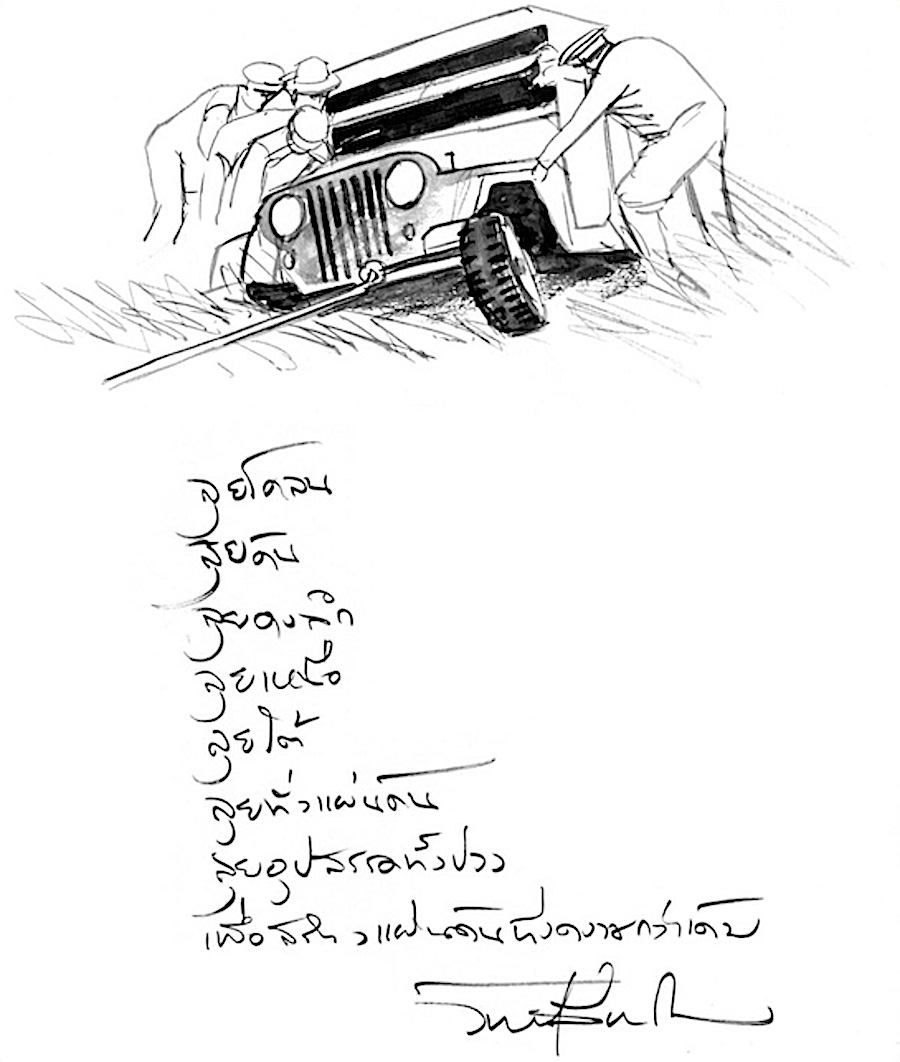 ลุยโคลน
ลุยดิน
ลุยดงลึก
ลุยเหนือ
ลุยใต้
ลุยทั่วแผ่นดิน
ลุยอุปสรรคทั้งปวง
เพื่อสร้างแผ่นดินที่งดงามกว่าเดิม